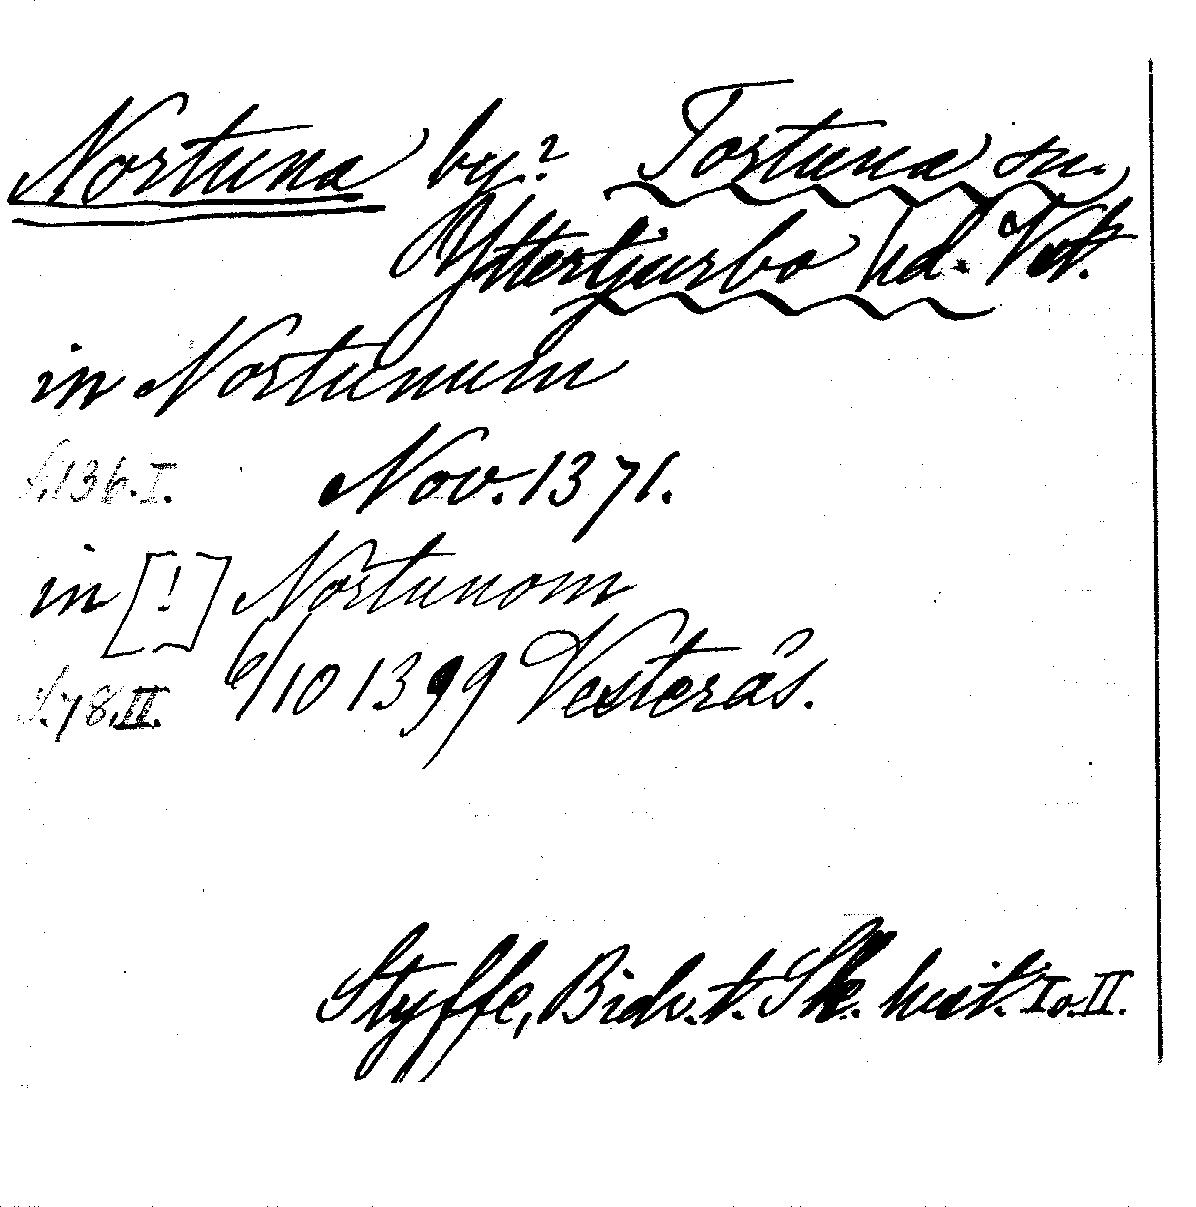 Nortuna by? Tortuna sn.
Yttertjurbo hd. Vstm.
in Nortunum
S. 136. I. Nov. 1371.
in [!] Nortunom
S. 78. II. 6/10 1399 Vesterås.
Styffe, Bidr. t. Sk. hist. I o. II.